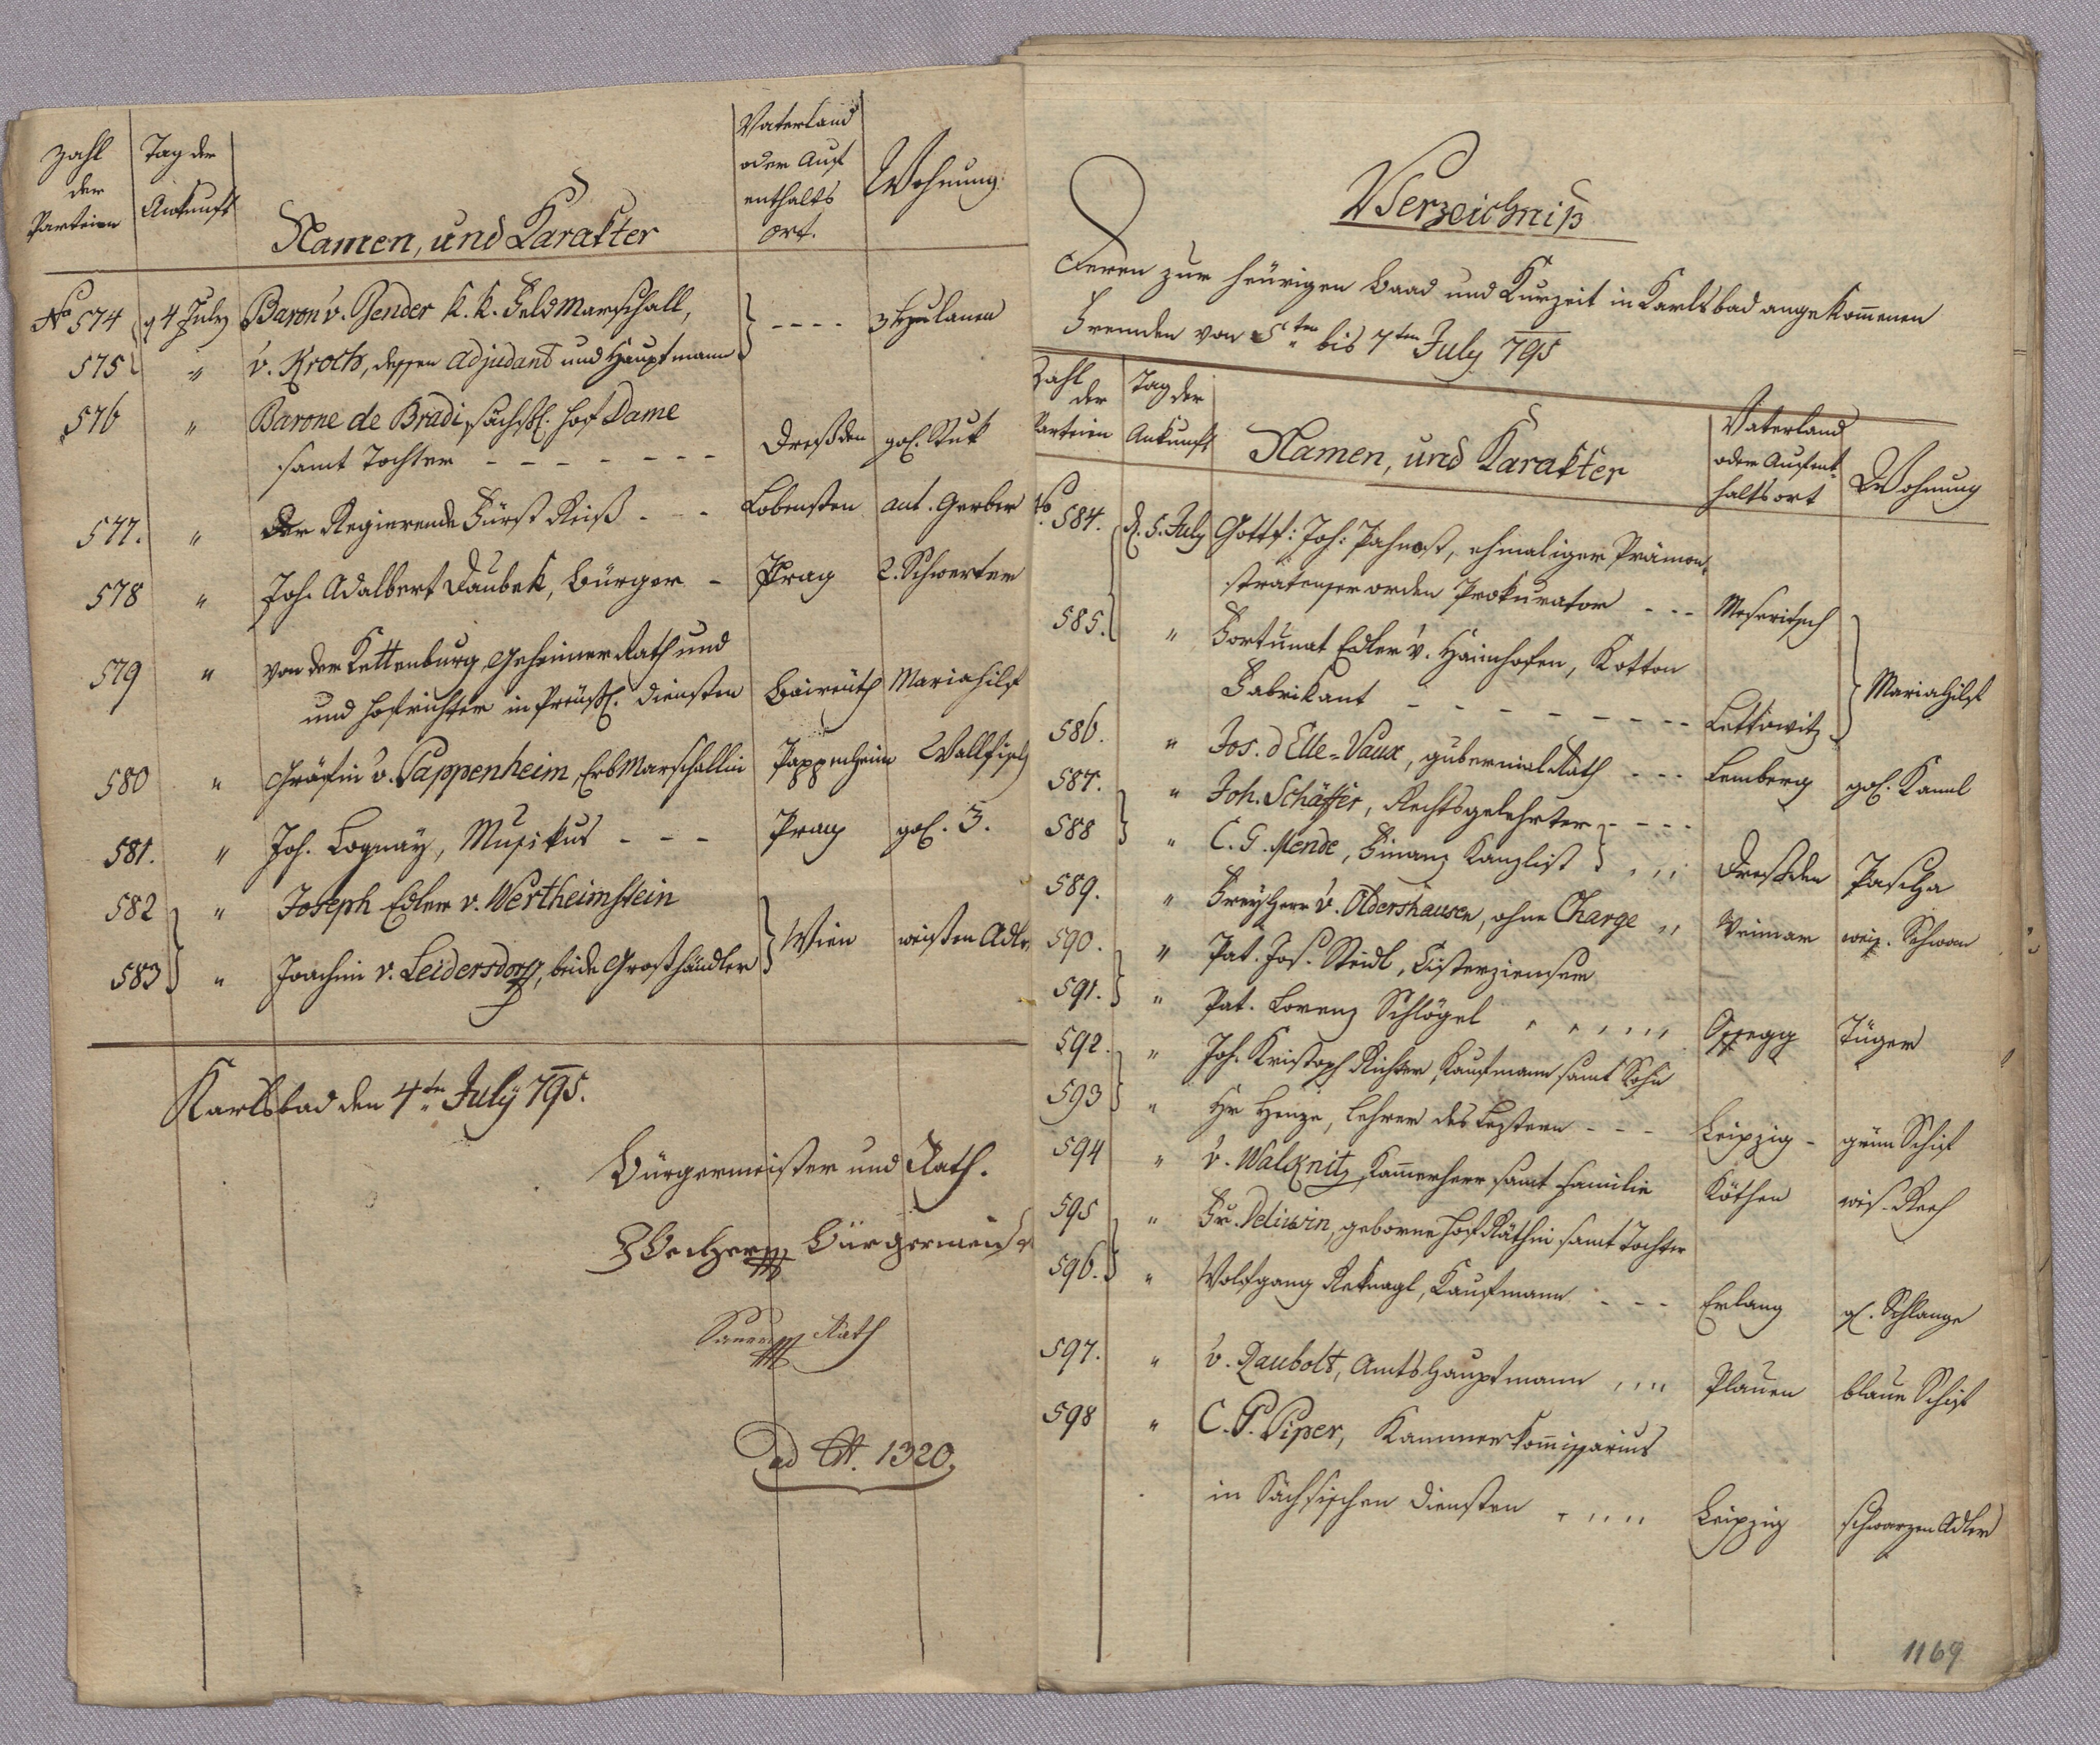 Zahl der Parteien | Tag der Ankunft | Namen, und Karakter | Vaterland oder Aufenthalts ort. | Wohnung
No 574 | 4 July | Baron v. Bender k. k. Feld Marschall,
575 | " | v. Kroth, dessen Adjudant und Hauptmann | - - - - | 3 Hulanen
576 | " | Barone de Bradi, sächß. Hof Dame
samt Tochter - - - - - - - | Dreßden | gol. Ruk
577. | " | Der Regierende Fürst Reiß - - - | Lobensten | ant. Gerber
578 | " | Joh. Adalbert Daubek, Bürger - | Prag | 2. Schwerter
579 | " | von der Kettenburg, Geheimer Rath und
und Hofrichter in Preüß. Diensten | Baireuth | Mariahilf
580 | " | Gräfin v. Pappenheim, Erb Marschallin | Pappenheim | Wallfisch
581. | " | Joh. Lognay, Musikus - - - | Prag | gol. 3.
582 | " | Joseph Edler v. Wertheimstein
583 | " | Joachim v. Leidersdorff, beide Großhändler | Wien | weißen Adler
Karlsbad den 4ten July 795.
Bürgermeister und Rath.
Bürgermeister
Rath
ad N. 1320.
Verzeichniß
Deren zur heurigen Baad und Kurzeit in Karlsbad angekommenen
Fremden von 5ten bis 7ten July 795
Zahl der Parteien | Tag der Ankunft | Namen, und Karakter | Vaterland oder Aufenthaltsort | Wohnung
No 584. | d. 5. July | Gottf: Joh: Pahnost, ehmaliger Prämon-
stratenser orden Prokurator - - - | Meseritsch
585. | " | Fortunat Edler v. Haimhofen, Kotton
Fabrikant - - - - - - - - - | Lettowitz | Mariahilf
586. | " | Jos. d'Elle-Vaux, gubernial Rath - - - | Lemberg | gol. Kanel
587. | " | Joh. Schäffer, Rechtsgelehrter - - - -
588 | " | C. G. Mende, Finanz Kanzlist | Dreßden | Pascha
589. | " | Freyherr v. Oldershausen, ohne Charge | Weimar | weiß. Schwan
590. | " | Pat. Jos. Steidl, Cisterzienser
591. | " | Pat. Lorenz Schlögel | Ossegg | Jäger
592. | " | Joh. Kristoph Richter, Kaufmann samt Sohn
593 | " | Hr Henze, Lehrer des Leztern - - - | Leipzig - | grün Schif
594 | " | v. Walknitz, Kamerherr samt Familie | Köthen | weis. Reh
595 | " | Fr. Deliusin, geborne Hof Räthin samt Tochter
596. | " | Wolfgang Reknagl, Kaufmann - - - | Erlang | gl. Schlange
597. | " | v. Raubolt, Amtshauptmann | Plauen | blaue Schif
598 | " | C. G. Piper, Kammerkomissarius
in Sächsischen Diensten | Leipzig | schwarzen Adler
1169